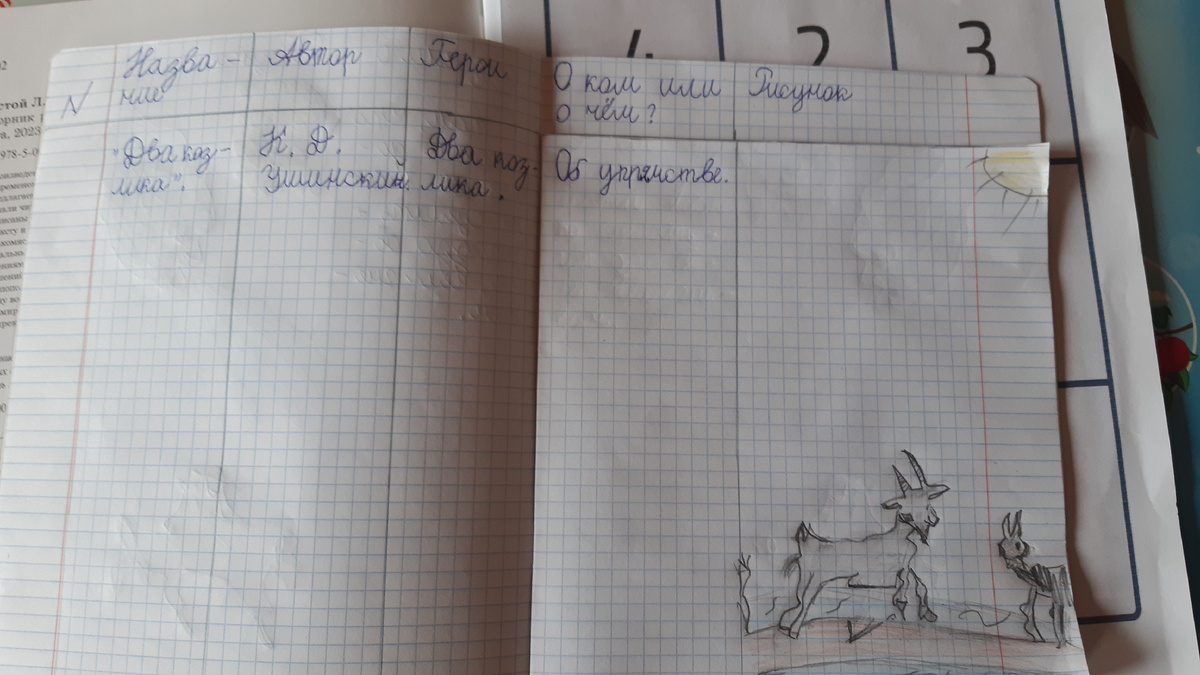 №
Назва-
ние
Автор
Герои
О ком или
о чём?
Рисунок
"Два коз-
лика".
К. Д.
Ушинский.
Два коз-
лика.
Об упрямстве.
2
3
стой Л.
орник
а, 2023
978-5-0